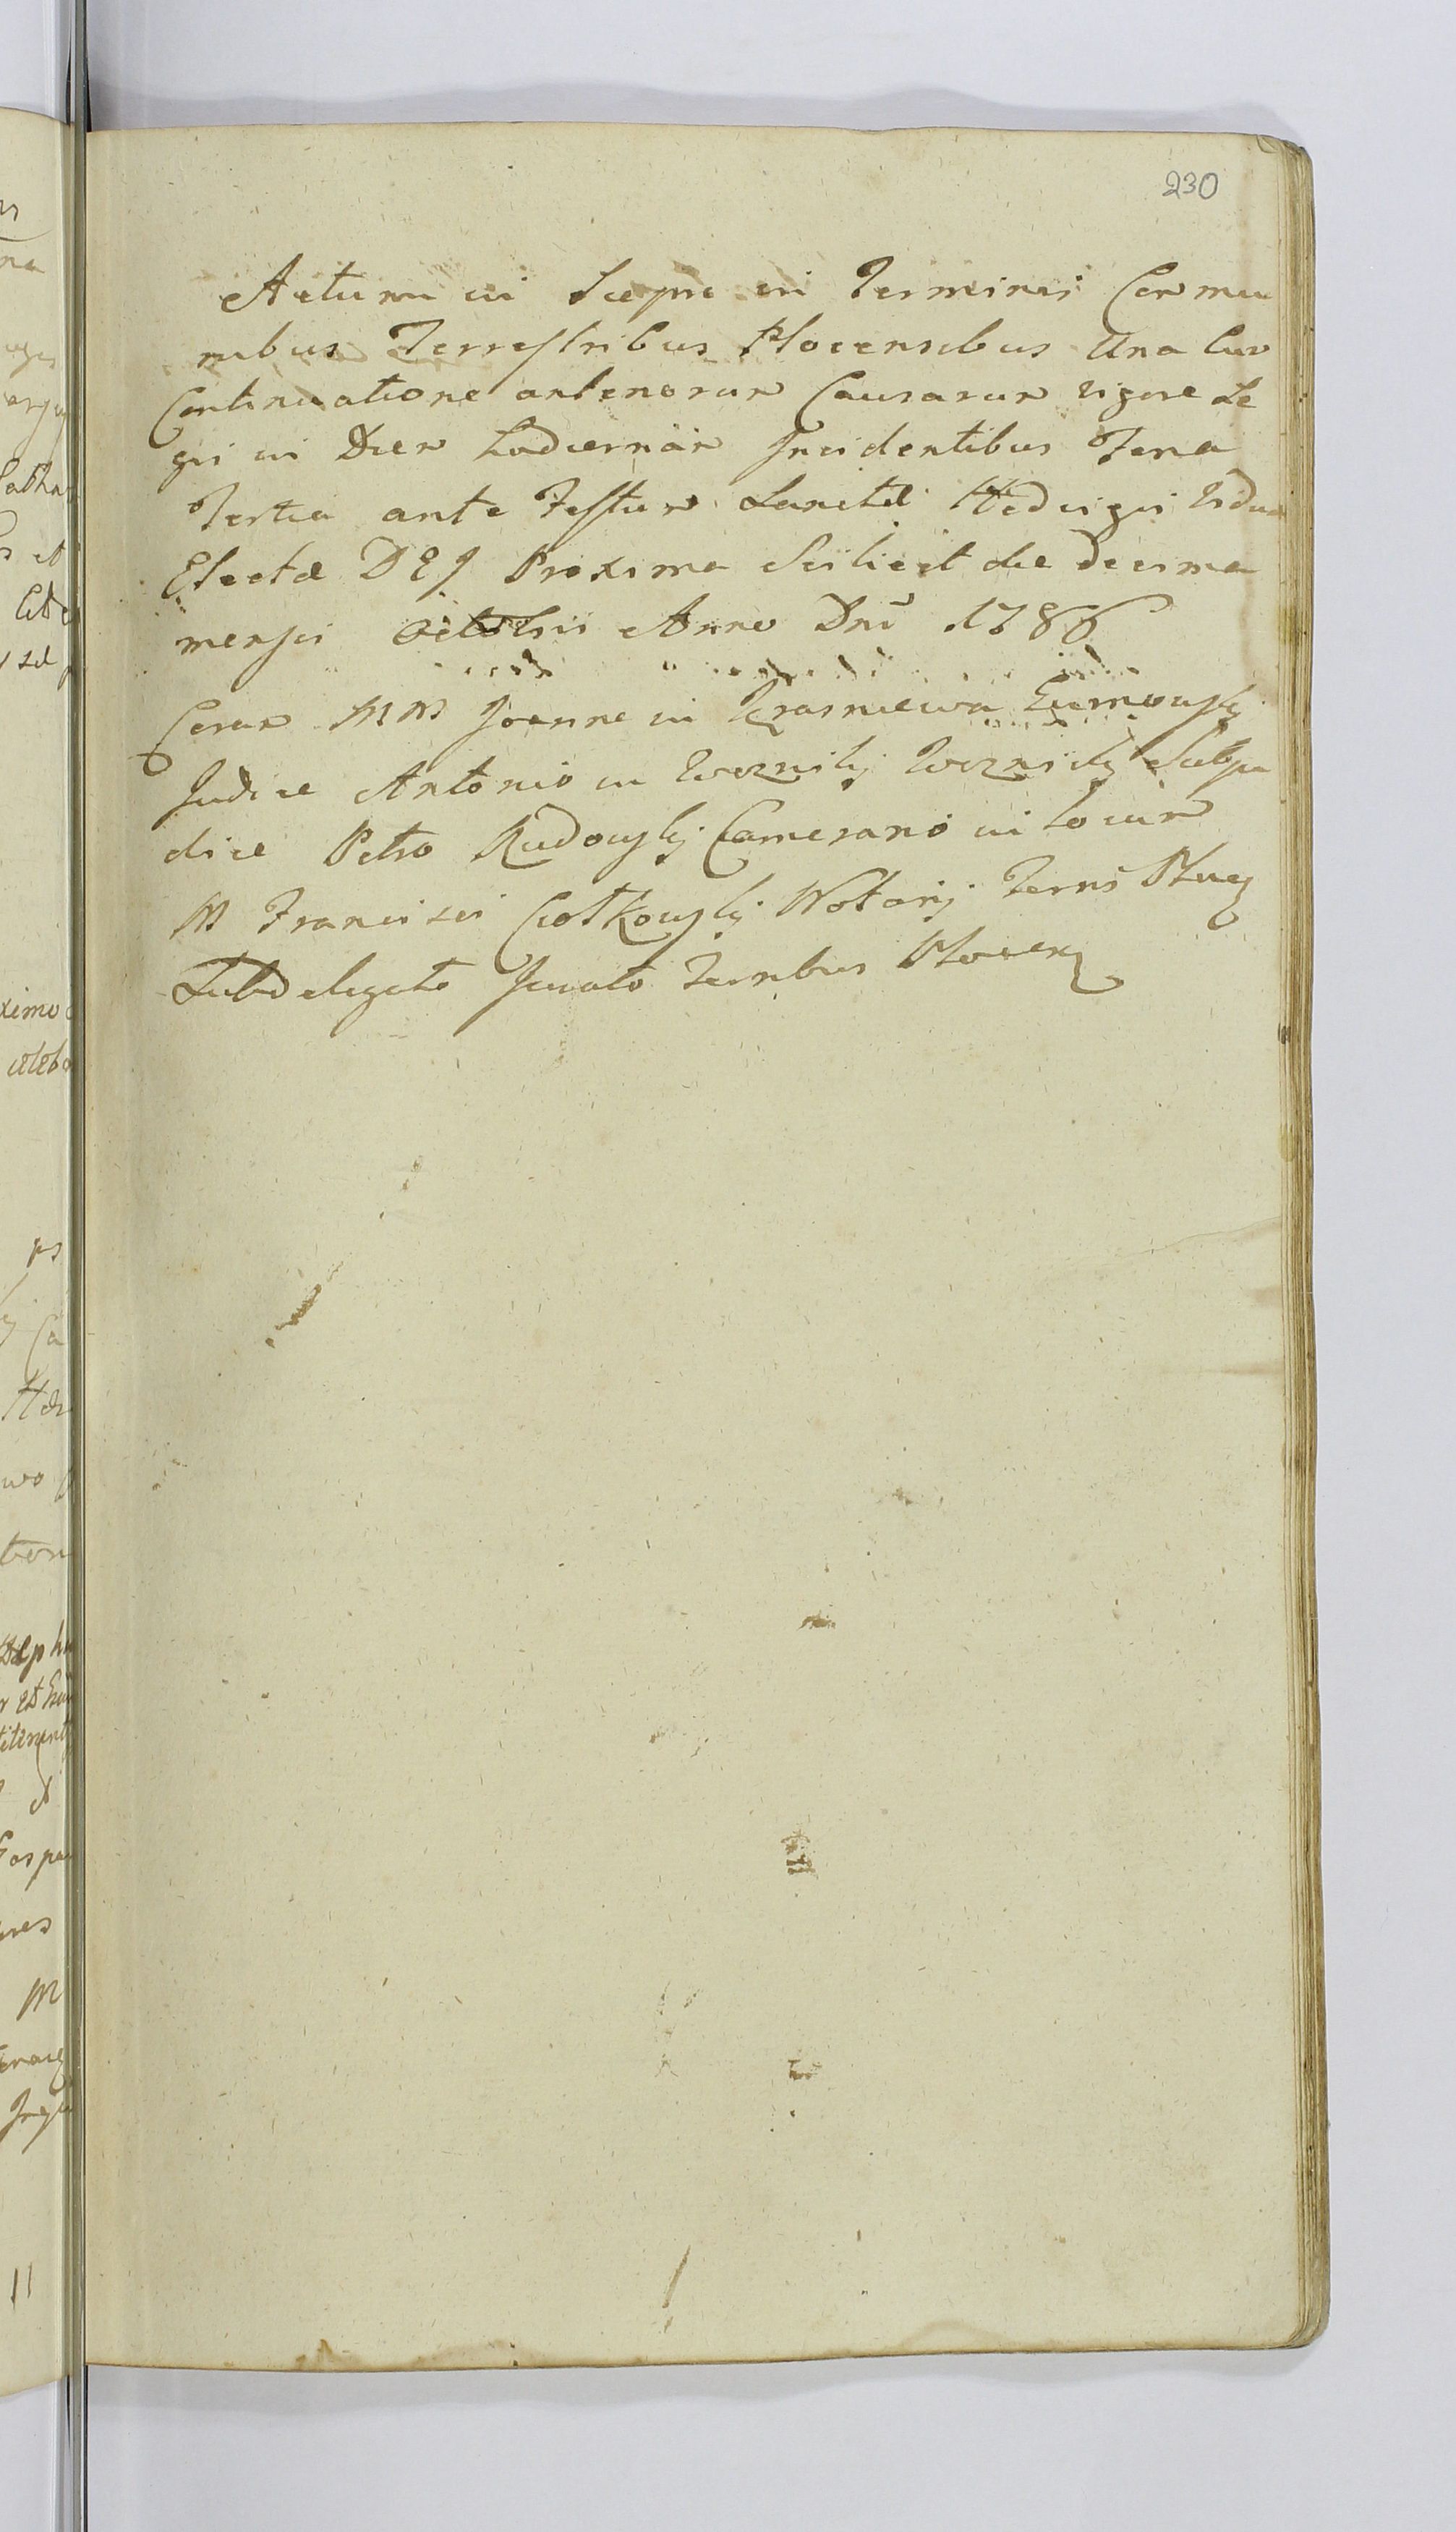 230
Actum in Sierpc in Terminis Commu
nibus Terrestribus Plocensibus Una Cum
Continuatione anteriorum Causarum vigore Le
gis in Diem hodiernam Incidentibus Feria
Tertia ante Festum Sanctæ Hedvigis Vidua
Electæ DEI Proxima Scilicet die decima
mensis Octobris Anno Dni 1786
Coram MM Joanne in Krasniewo
Judice Antonio in Woznikij Woznicki Subju
dice Petro Rudowskj Camerario in locum
M Francisci Ciotkowskij Notarij Terris Plocen
Subdelegato Jurato Terribus Plocen